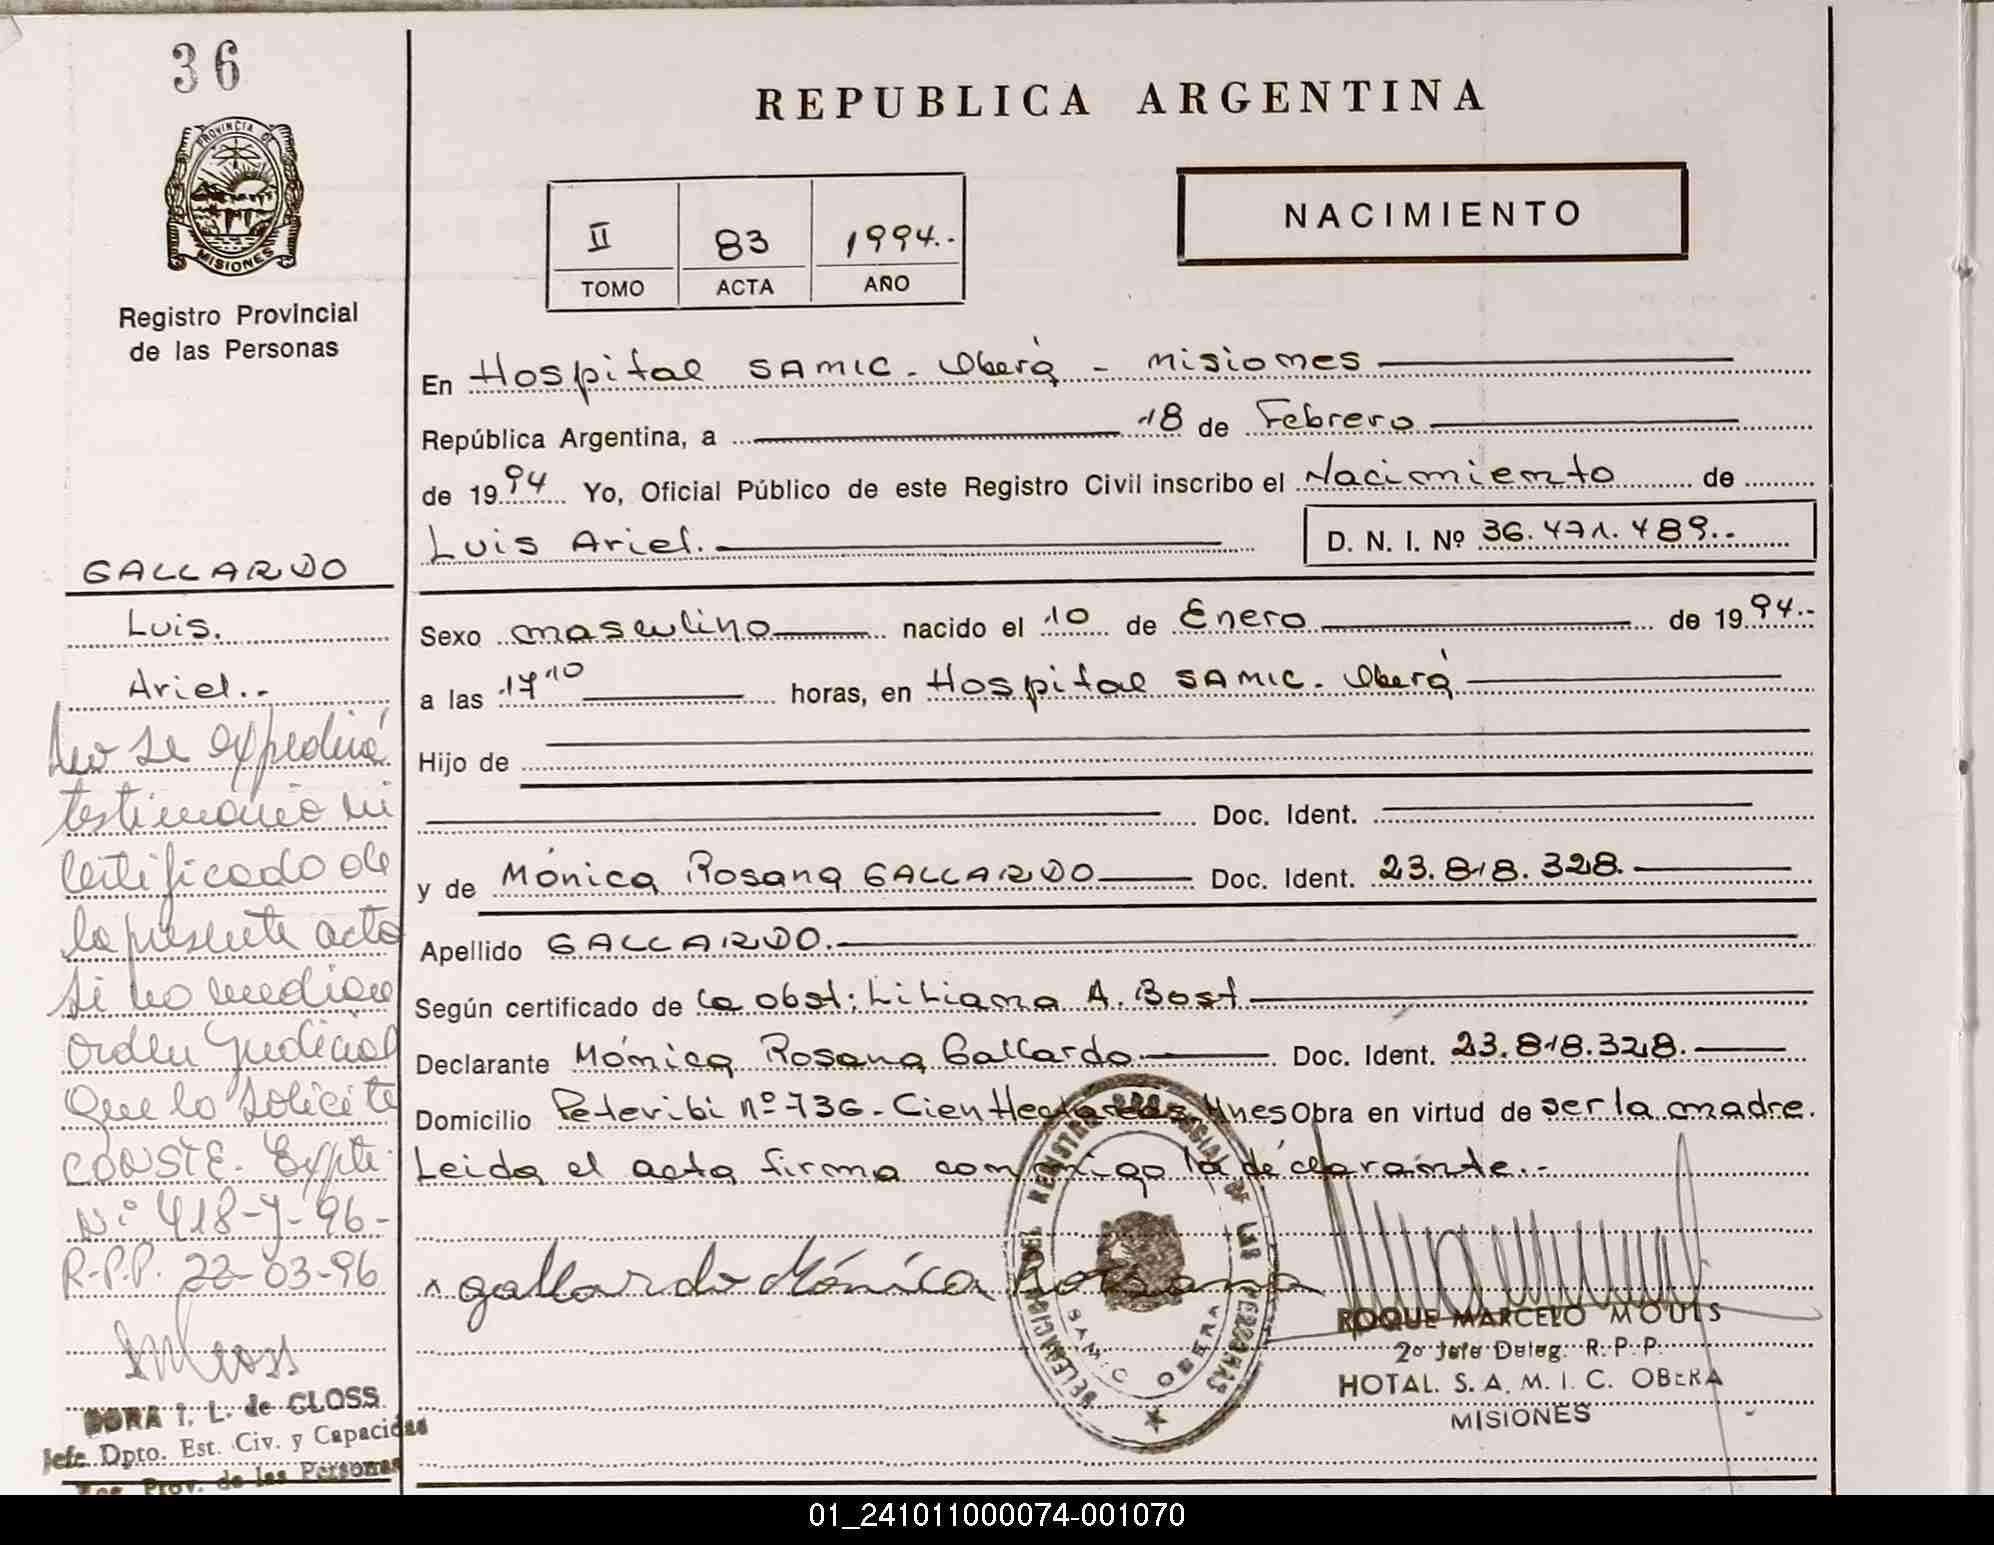 36
PROVINCIA DE
MISIONES
Registro Provincial
de las Personas
GALLARDO
Luis.
Ariel.-
No se expedirá
testimonio ni
certificado de
la presente acta
si no media
orden judicial
que lo solicite
CONSTE. Expte.
N° 418-Y-96-
R.P.P. 22-03-96
DORA I. L. de GLOSS
Jefe Dpto. Est. Civ. y Capacidas
Reg. Prov. de las Personas
REPUBLICA ARGENTINA
II 83 1994.-
TOMO ACTA AÑO
NACIMIENTO
En Hospital SAMIC. Oberá - Misiones
República Argentina, a 18 de Febrero
de 1994 Yo, Oficial Público de este Registro Civil inscribo el Nacimiento de
Luis Ariel. D. N. I. Nº 36.471.489.-
Sexo masculino nacido el 10 de Enero de 1994.-
a las 17 10 horas, en Hospital SAMIC. Oberá
Hijo de
Doc. Ident.
y de Mónica Rosana GALLARDO Doc. Ident. 23.818.328.
Apellido GALLARDO.
Según certificado de la obst; Liliana A. Bost
Declarante Mónica Rosana Gallardo Doc. Ident. 23.818.328.
Domicilio Peteribi nº 736 - Cien Hectareas. Mnes Obra en virtud de ser la madre.
Leida el acta firma conmigo la declarante.-
gallardo Mónica Rosana
DELEGACION DEL REGISTRO PROVINCIAL DE LAS PERSONAS
SAMIC OBERA
ROQUE MARCELO MOULS
2o Jefe Deleg. R. P. P.
HOTAL. S. A. M. I. C. OBERA
MISIONES
01_241011000074-001070